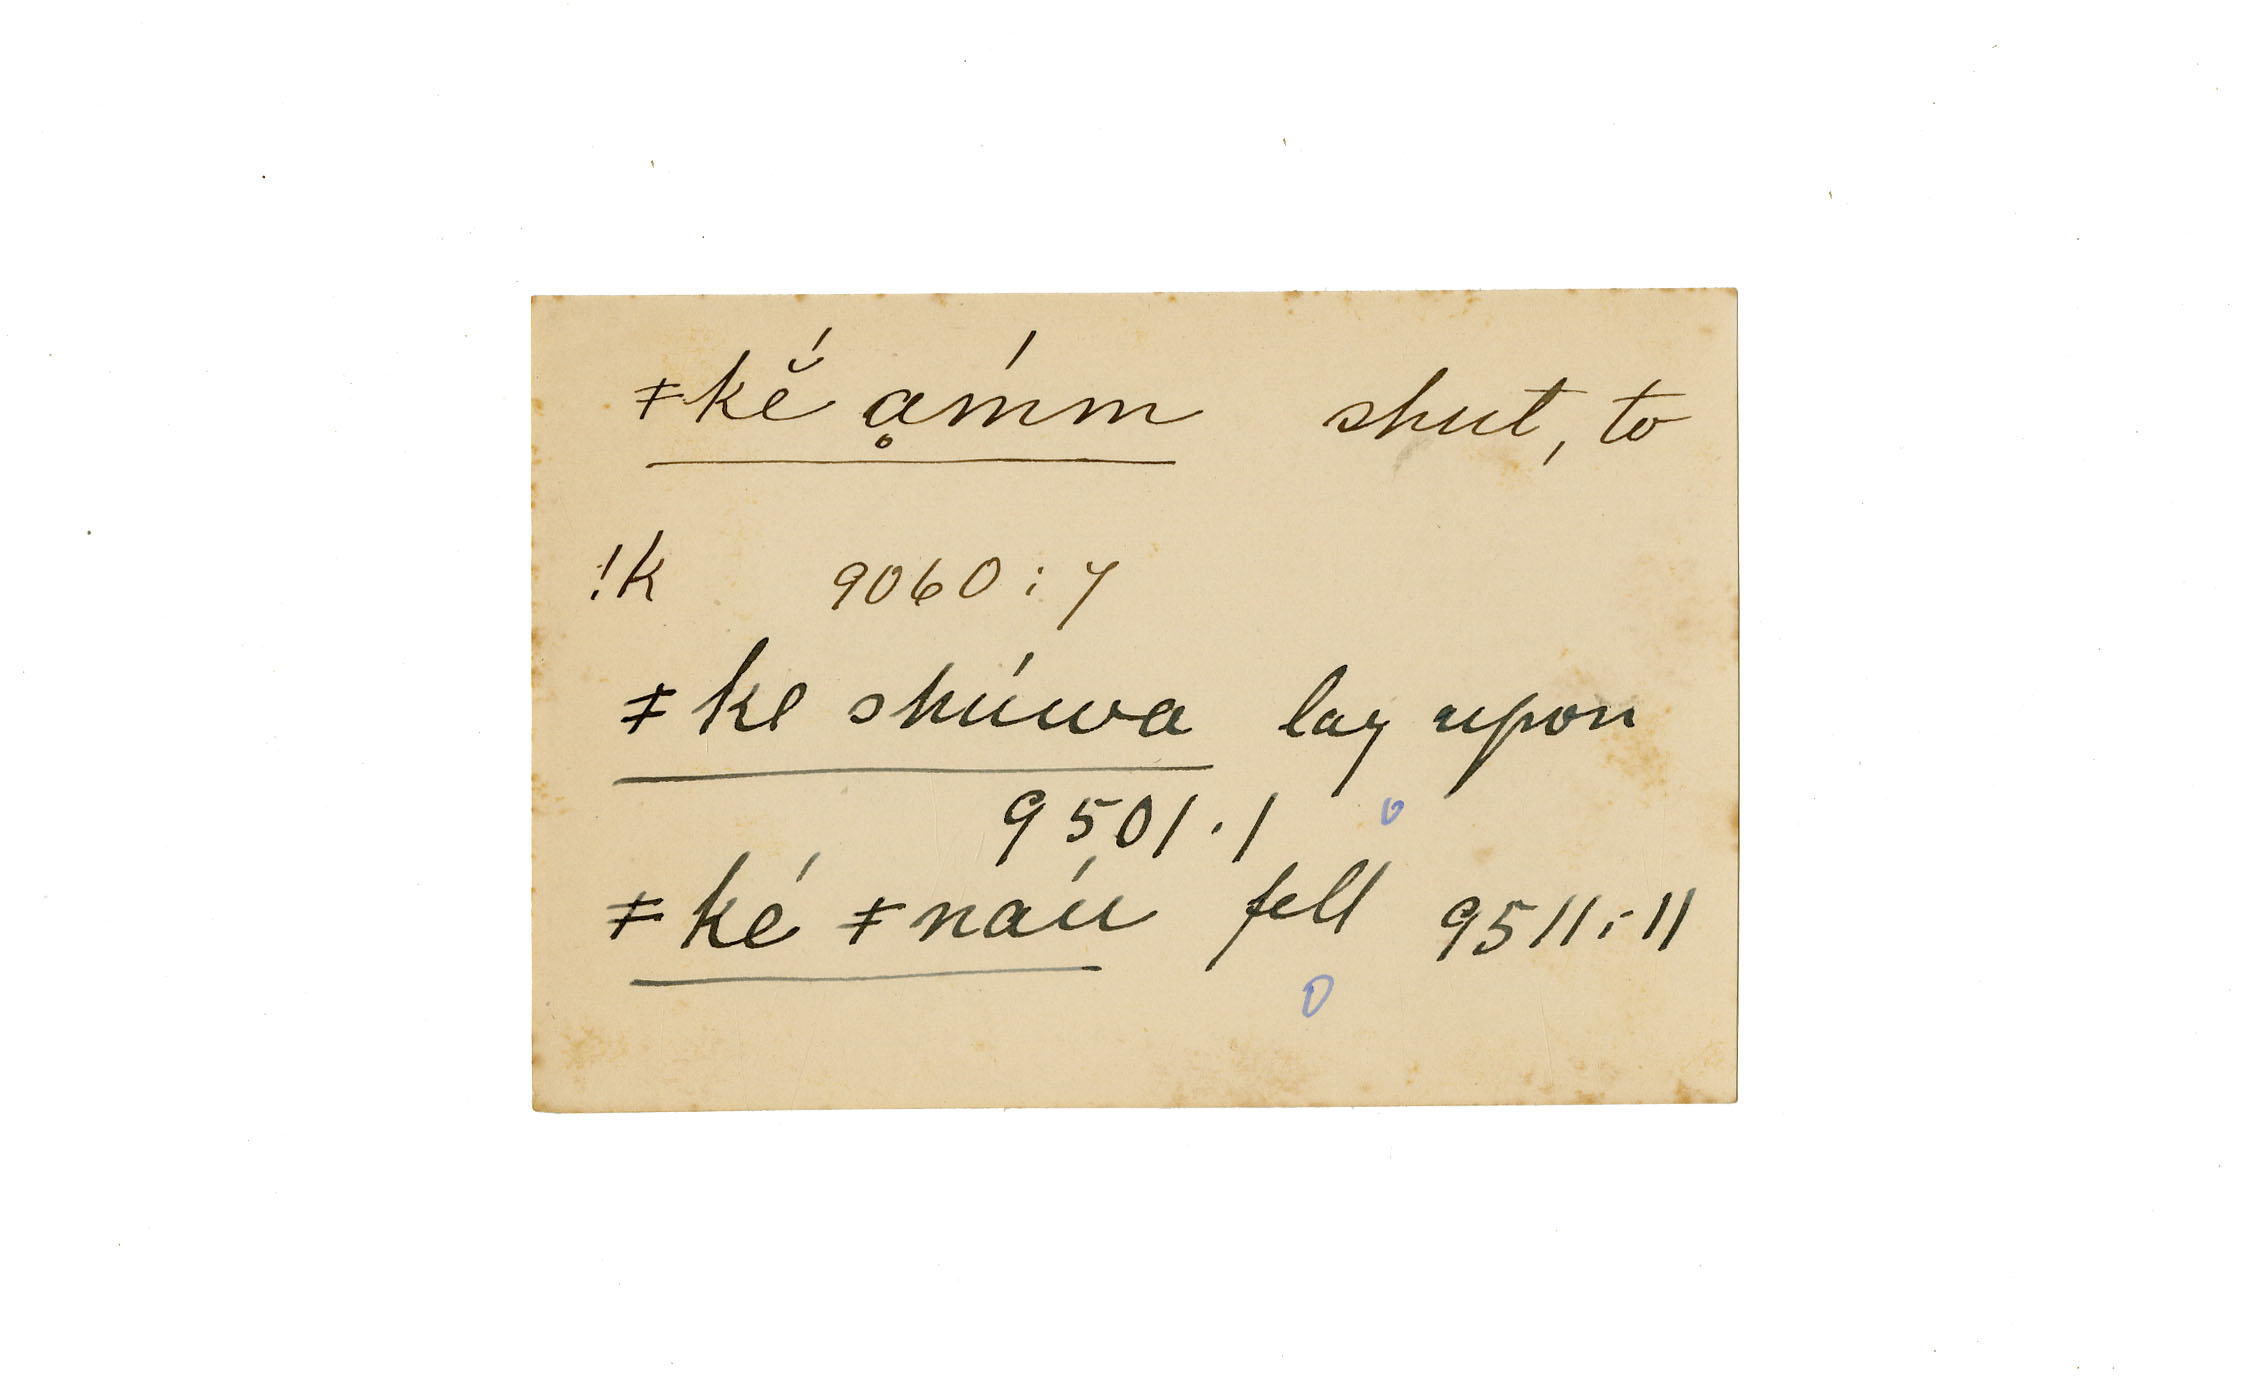 ǂkĕ́ ḁḿm shut, to
!k 9060:7
ǂke shúwa lay upon
9501.1
ǂké ǂnáu fell 9511:11